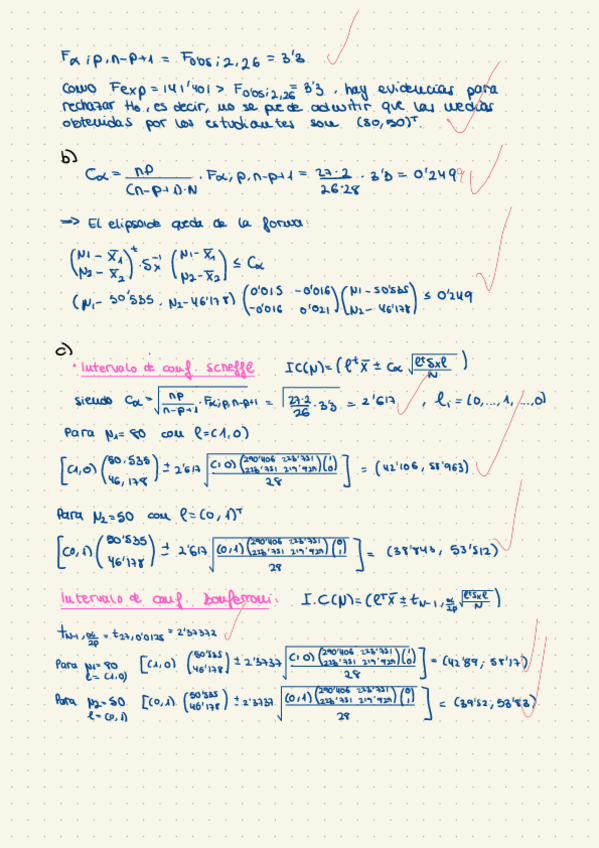 Fα; p, n-p+1 = F0'05; 2, 26 = 3'3
Como Fexp = 141'401 > F0'05; 2,26 = 3'3, hay evidencias para
rechazar H0, es decir, no se puede admitir que las medias
obtenidas por los estudiantes son (80,50)ᵀ.
b)
Cα = np / ((n-p+1)·N) · Fα; p, n-p+1 = 27·2 / 26·28 · 3'3 = 0'249
=> El elipsoide queda de la forma:
(μ1 - x̄1, μ2 - x̄2)ᵗ · Sx⁻¹ (μ1 - x̄1, μ2 - x̄2) ≤ Cα
(μ1 - 50'535, μ2 - 46'178) (0'015 -0'016, -0'016 0'021) (μ1 - 50'535, μ2 - 46'178) ≤ 0'249
c)
· Intervalo de conf. Scheffé IC(μ) = (ℓᵗx̄ ± Cα √(ℓᵗSxℓ / N))
siendo Cα = √(np / n-p+1 · Fα; p, n-p+1) = √(27·2 / 26 · 3'3) = 2'617, ℓi = (0,...,1,...,0)
Para μ1 = 80 con ℓ = (1,0)
[(1,0) (50.535, 46,178) ± 2'617 √((1,0) (290'406 223'731, 223'731 219'929) (1, 0) / 28)] = (42'106, 58'963)
Para μ2 = 50 con ℓ = (0,1)ᵀ
[(0,1) (50'535, 46'178) ± 2'617 √((0,1) (290'406 223'731, 223'731 219'929) (0, 1) / 28)] = (38'843, 53'512)
Intervalo de conf. Bonferroni: I.C(μ) = (ℓᵀx̄ ± tN-1, α/2p √(ℓᵗSxℓ / N))
tN-1, α/2p = t27, 0'0125 = 2'37372
Para μ1 = 80 [(1,0) (50'535, 46'178) ± 2'3737 √((1,0) (290'406 223'731, 223'731 219'929) (1, 0) / 28)] = (42'89; 58'17)
ℓ = (1,0)
Para μ2 = 50 [(0,1) (50'535, 46'178) ± 2'3737 √((0,1) (290'406 223'731, 223'731 219'929) (0, 1) / 28)] = (39'52; 53'83)
ℓ = (0,1)